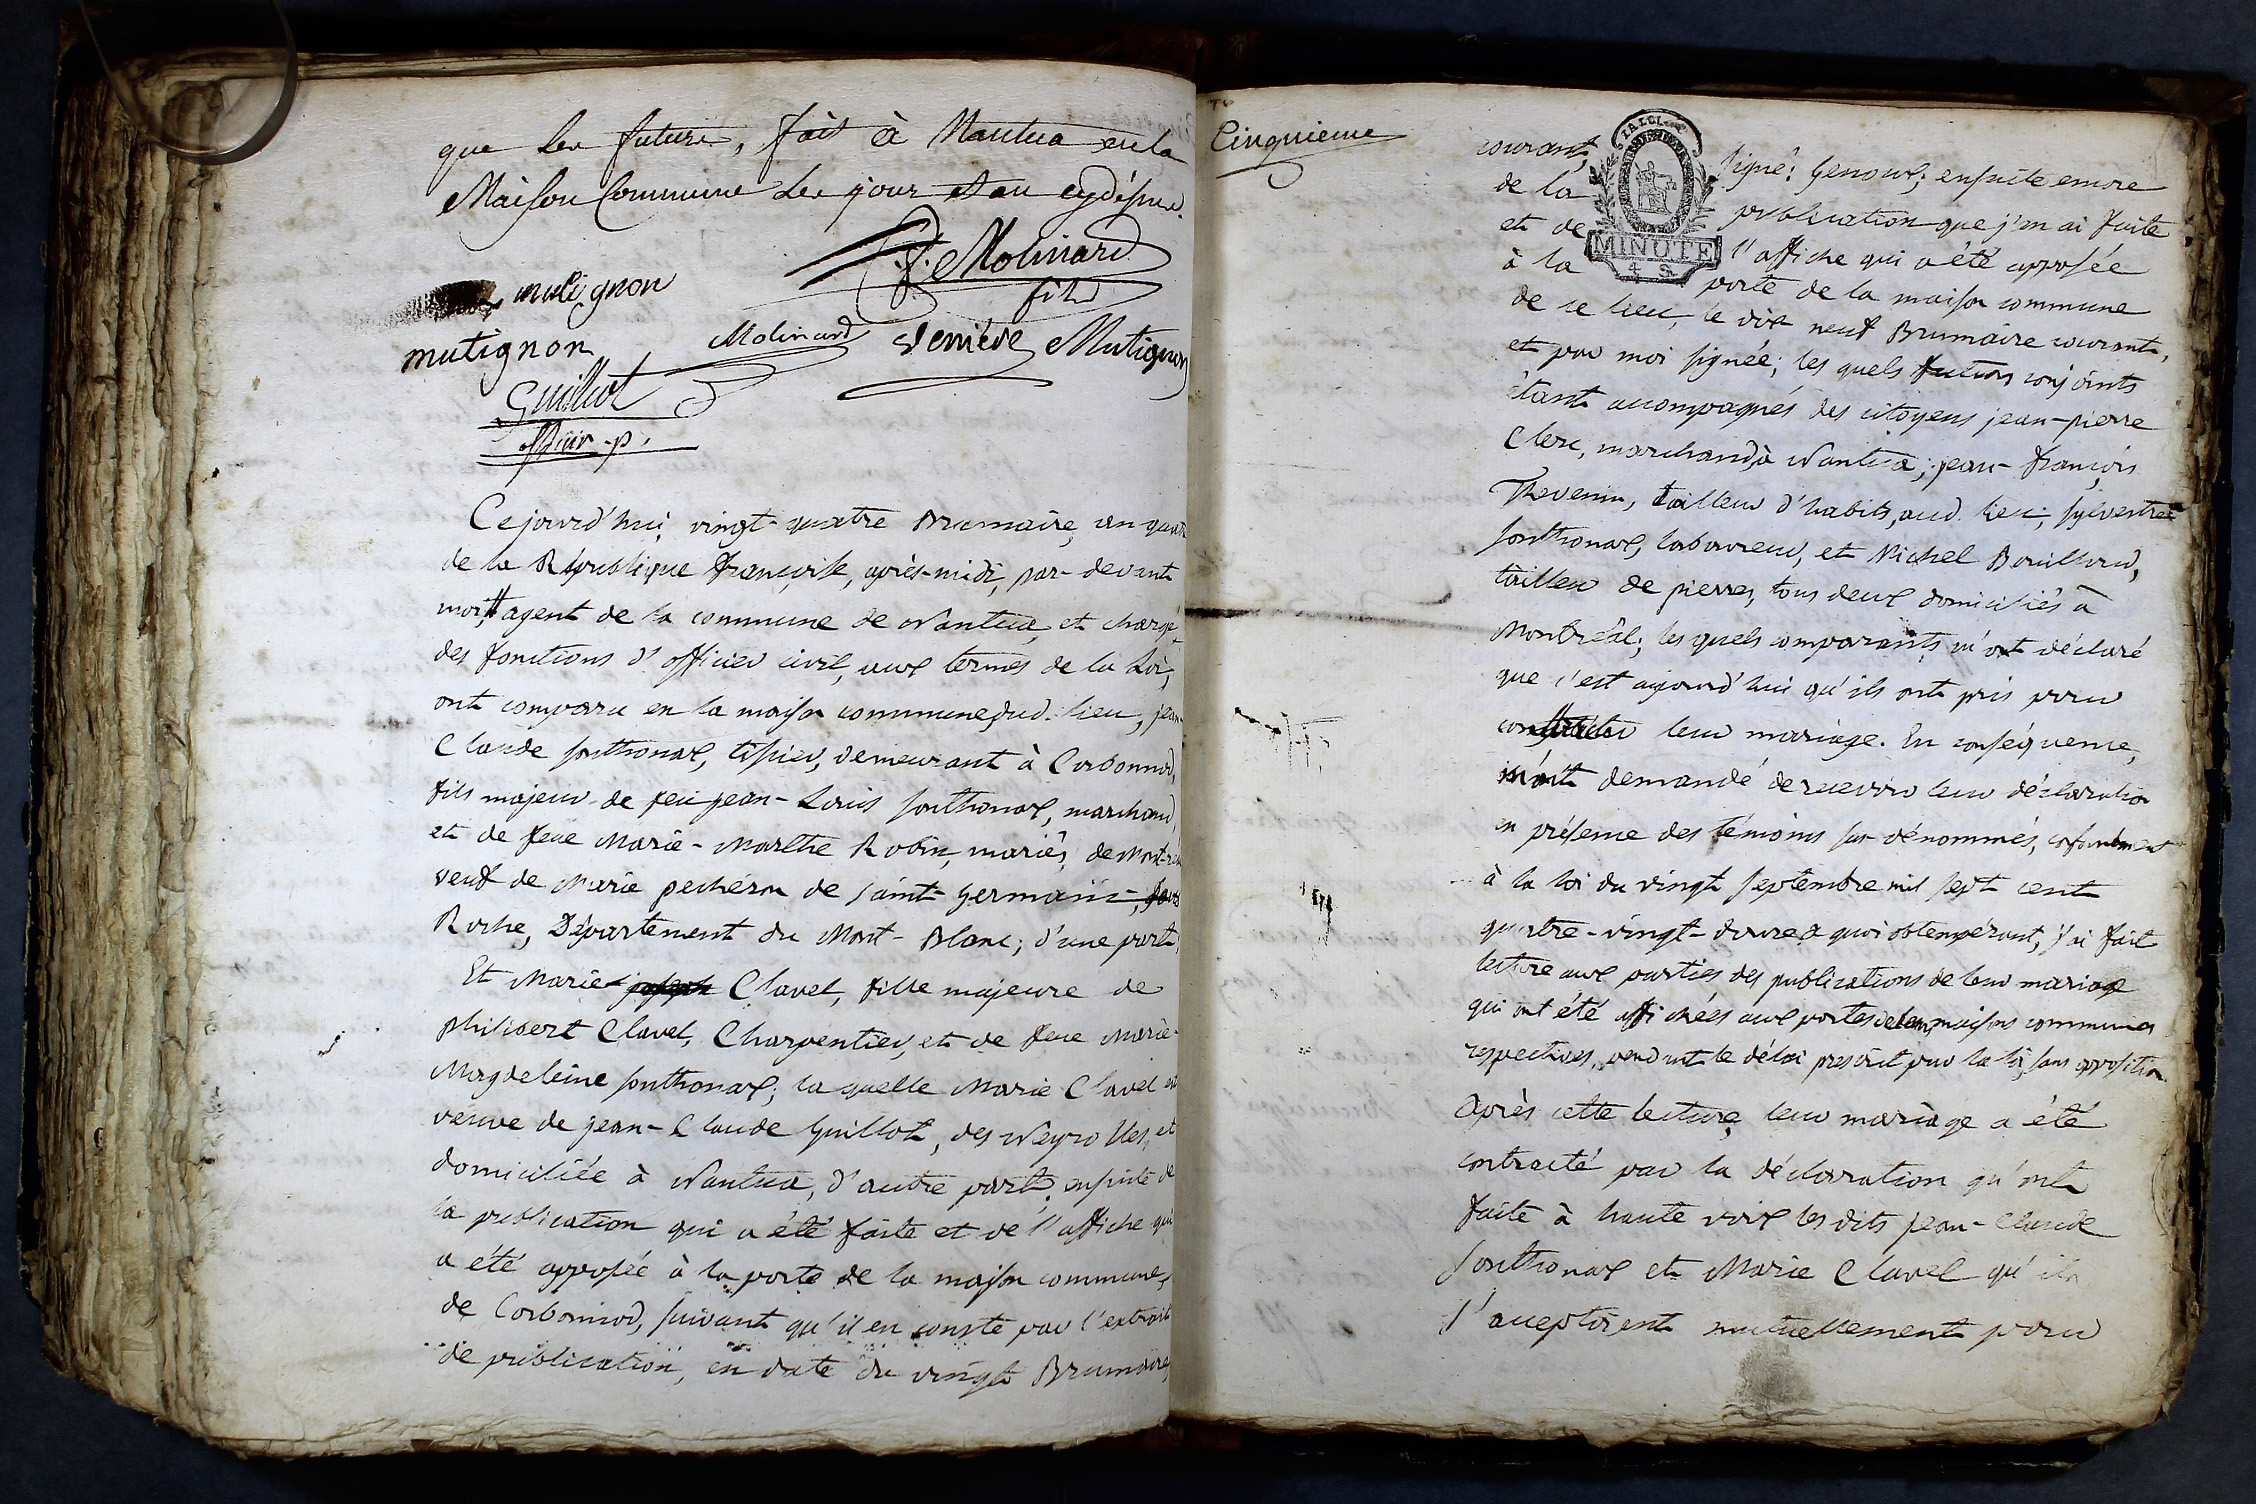 que les futurs, fait à Nantua en la
Maison Commune les jour et an cydésus.
J. Molinard
fils
mutignon
mutignon Molinard Mutignon
Guillot
offcier p.
Cejourd'hui vingt-quatre Brumaire, an quatre
de la République françoise, après-midi, par-devant
moi, agent de la commune de Nantua, et chargé
des fonctions d'officier civil, aux termes de la Loi,
ont comparu en la maison commune dud. lieu, jean-
Claude Sonthonax, tissier, demeurant à Corbonnod,
fils majeur de feu jean-Louis Sonthonax, marchand,
et de feue Marie-Marthe Robin, mariés, de Mont-réal
veuf de Marie pechéron de saint Germain,
Roche, Département du Mont-Blanc; d'une part,
Et Marie joseph Clavel, fille majeure de
philibert Clavel, Charpentier, et de feue Marie-
Magdeleine Sonthonax; la quelle Marie Clavel est
veuve de jean-Claude Guillot, des Neyrolles, et
domiciliée à Nantua, d'autre part. ensuite de
la publication qui a été faite et de l'affiche qui
a été apposée à la porte de la maison commune,
de Corbonnod, suivant qu'il en conste par l'extrait
de publication, en date du vingt Brumaire,
Cinquieme
MINUTE
4 S
courant, signé: Genoux; ensuite encore
de la publication que j'en ai faite
et de l'affiche qui a été apposée
à la porte de la maison commune
de ce lieu, le dix neuf Brumaire courant,
et par moi signée; les quels futurs conjoints
étant accompagnés des citoyens jean-pierre
Clerc, marchand, à Nantua; jean-françois
Thevenin, tailleur d'habits, aud. lieu; sylvestre
Sonthonax, laboureur, et Michel Bouillard,
tailleur de pierres, tous deux domiciliés à
Montréal; les quels comparants m'ont déclaré
que c'est aujourd'hui qu'ils ont pris pour
contracter leur mariage. En conséquence,
m'ont demandé de recevoir leur déclaration
en présence des témoins sus dénommés, conformément
à la loi du vingt septembre mil sept cent
quatre-vingt-douze; à quoi obtempérant, j'ai fait
lecture aux parties des publications de leur mariage
qui ont été affichées aux portes de leurs maisons communes
respectives, pendant le délai prescrit par la loi, sans opposition.
Après cette lecture, leur mariage a été
contracté par la déclaration qu'ont
faite à haute voix les dits jean-Claude
Sonthonax et Marie Clavel qu'ils
s'acceptoient mutuellement pour